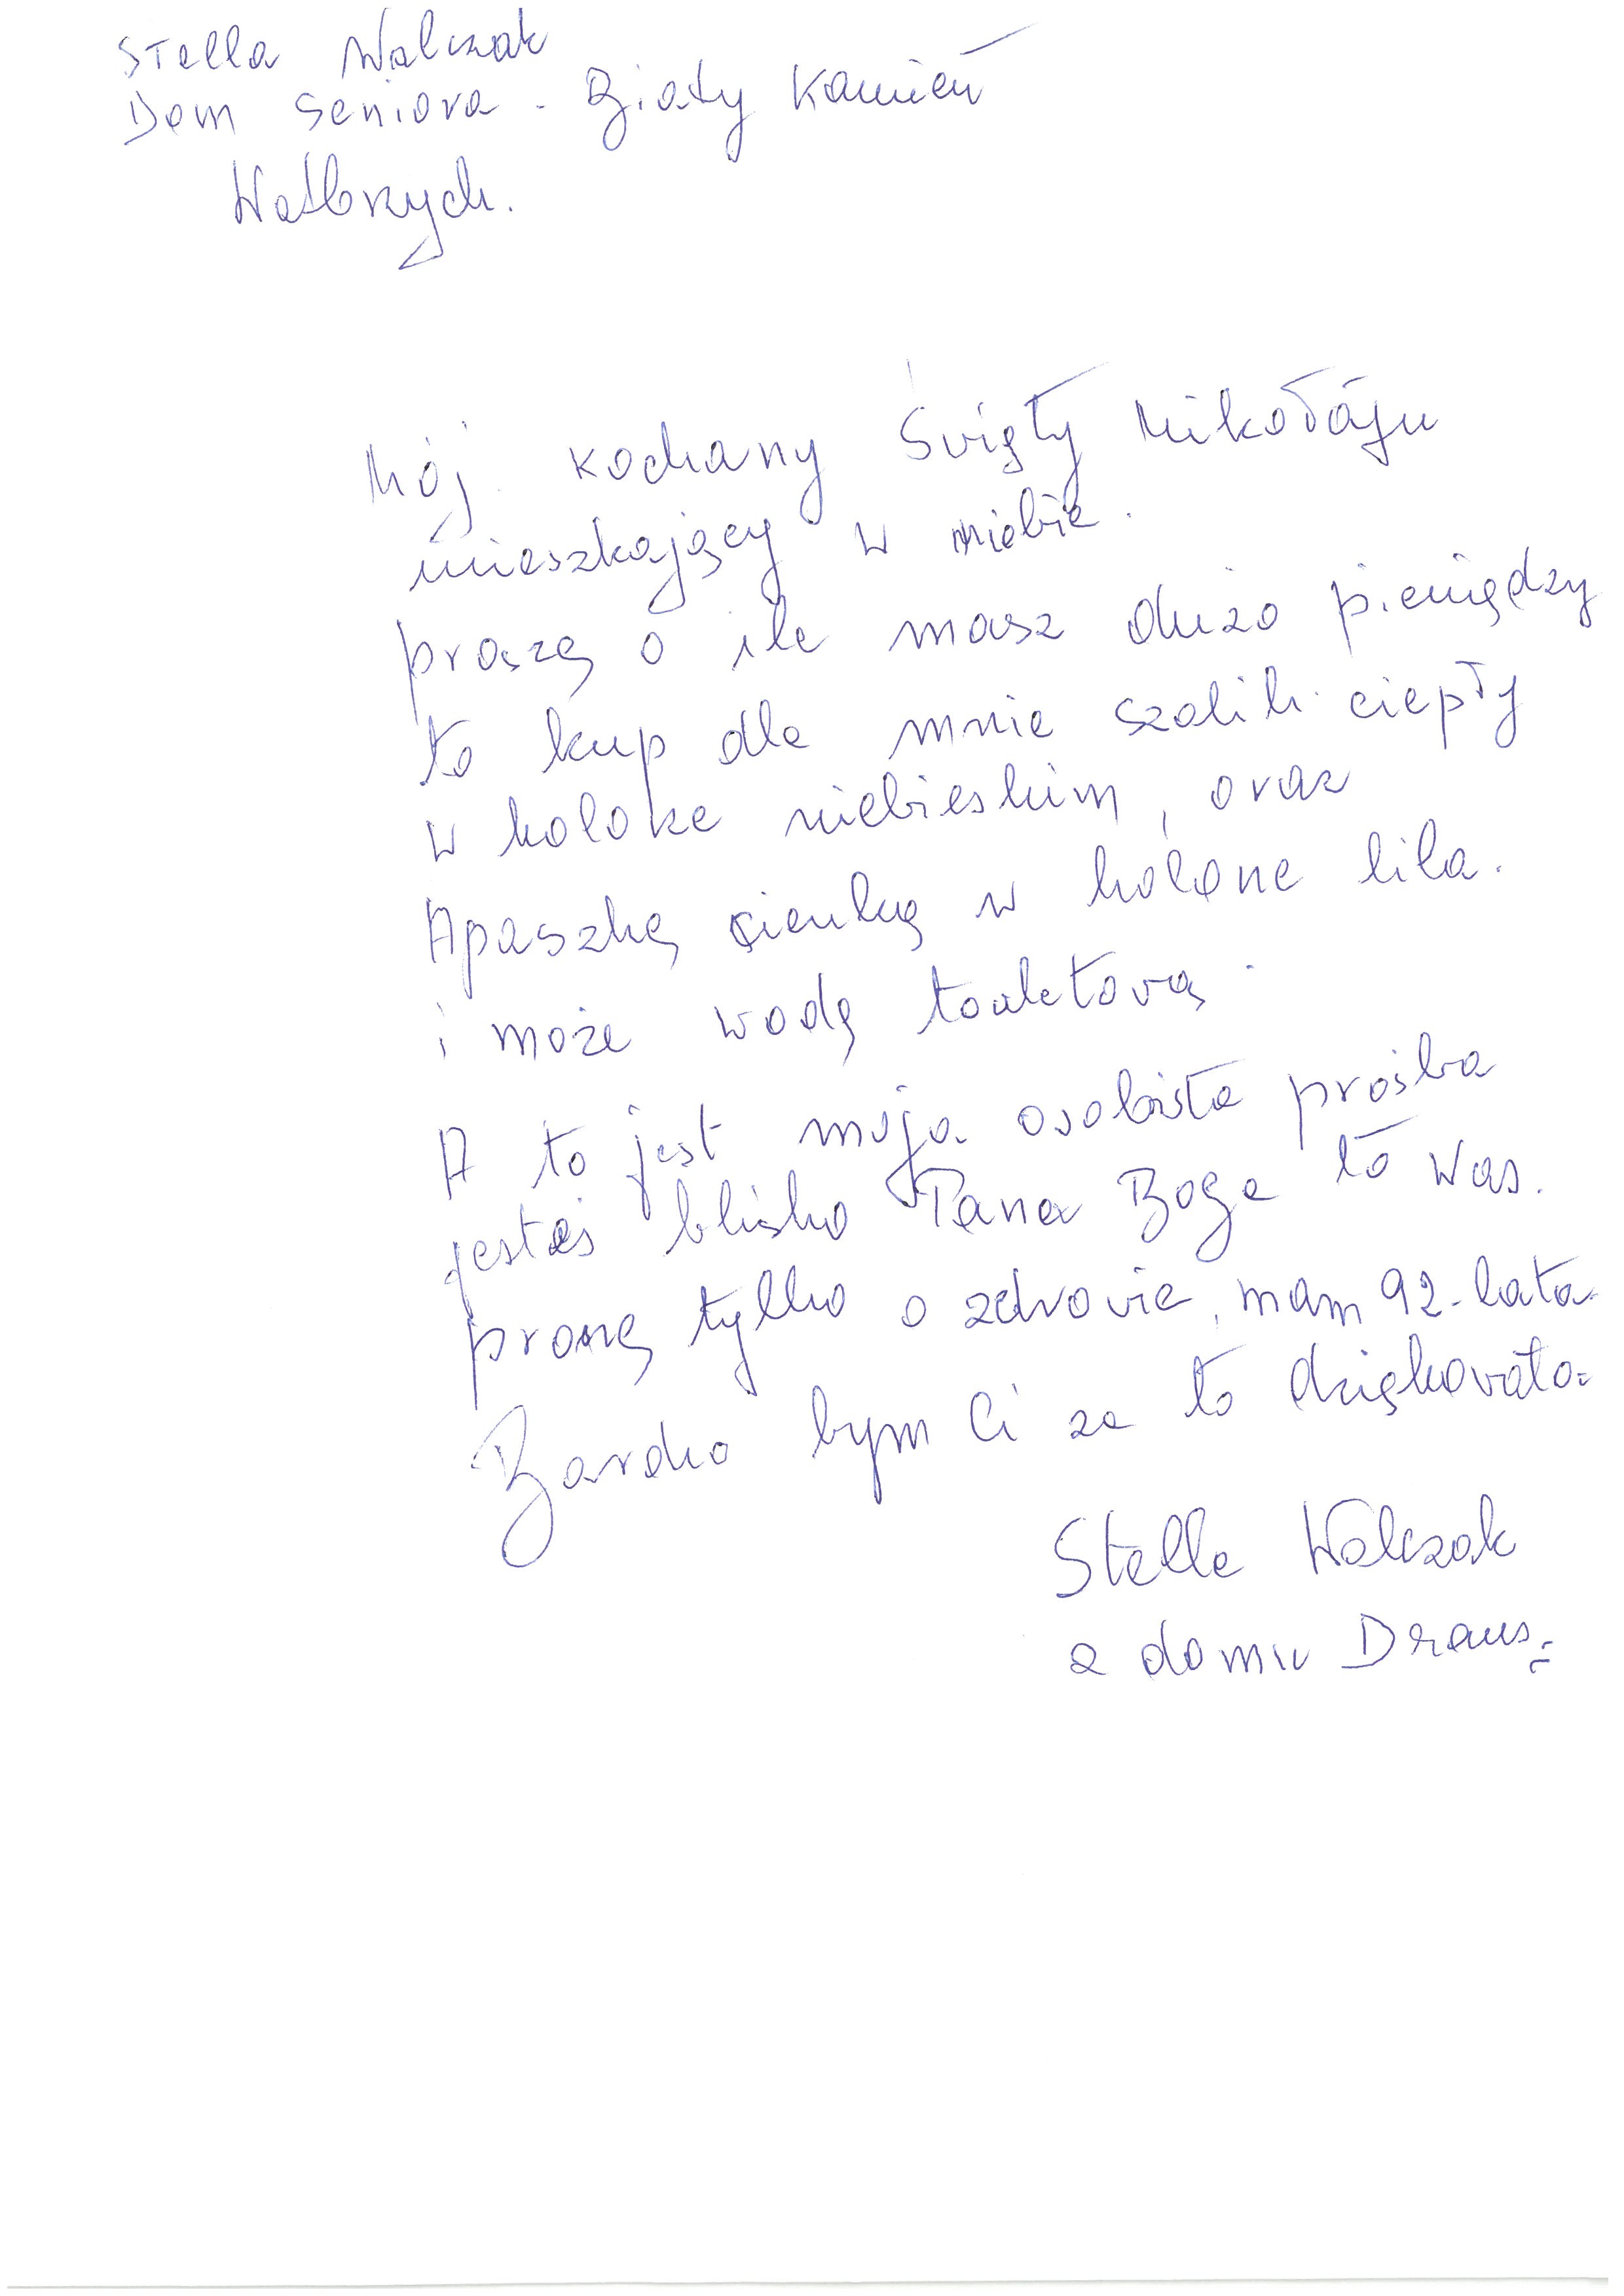 Stella Walczak
Dom Seniora - Biały Kamień
Wałbrzych.
Mój kochany Święty Mikołaju
mieszkający w niebie.
proszę o ile masz dużo pieniędzy
to kup dla mnie szalik ciepły
w kolorze niebieskim, oraz
Apaszkę cienką w kolorze lila.
i może wodę toaletową.
A to jest moja osobista prośba
jesteś blisko Pana Boga to Was.
proszę tylko o zdrowie, mam 92-lata.
Bardzo bym Ci za to dziękowała.
Stella Walczak
z domu